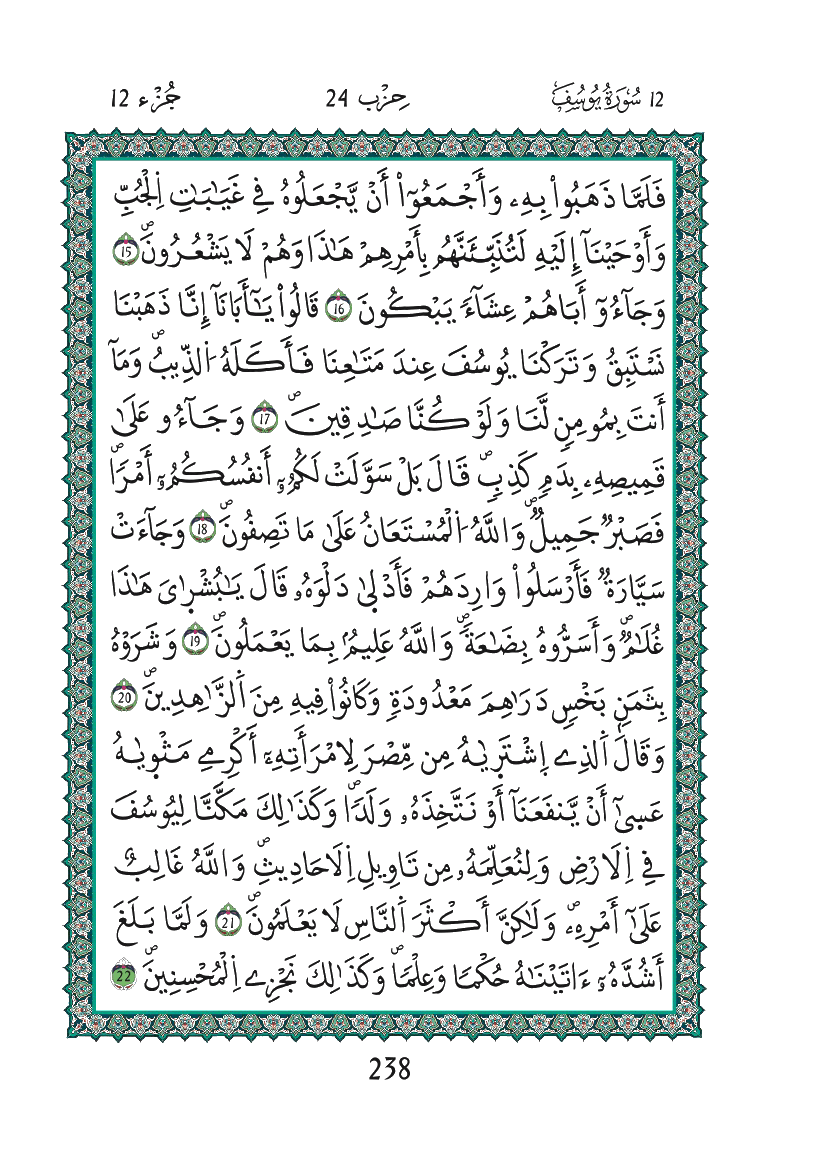 12 سُورَةُ يُوسُفَ حِزْب 24 جُزْء 12
فَلَمَّا ذَهَبُواْ بِهِۦ وَأَجْمَعُوٓاْ أَنْ يَّجْعَلُوهُ فِے غَيَٰبَٰتِ اِ۬لْجُبِّ
وَأَوْحَيْنَآ إِلَيْهِ لَتُنَبِّئَنَّهُم بِأَمْرِهِمْ هَٰذَا وَهُمْ لَا يَشْعُرُونَۖ 15
وَجَآءُوٓ أَبَاهُمْ عِشَآءٗ يَبْكُونَ 16 قَالُواْ يَٰٓأَبَانَآ إِنَّا ذَهَبْنَا
نَسْتَبِقُ وَتَرَكْنَا يُوسُفَ عِندَ مَتَٰعِنَا فَأَكَلَهُ اُ۬لذِّيبُۖ وَمَآ
أَنتَ بِمُومِنٖ لَّنَا وَلَوْ كُنَّا صَٰدِقِينَۖ 17 وَجَآءُو عَلَىٰ
قَمِيصِهِۦ بِدَمٖ كَذِبٖۖ قَالَ بَلْ سَوَّلَتْ لَكُمُۥٓ أَنفُسُكُمُۥٓ أَمْراٗۖ
فَصَبْرٞ جَمِيلٞۖ وَاللَّهُ اُ۬لْمُسْتَعَانُ عَلَىٰ مَا تَصِفُونَۖ 18 وَجَآءَتْ
سَيَّارَةٞ فَأَرْسَلُواْ وَارِدَهُمْ فَأَدْلَىٰ دَلْوَهُۥ قَالَ يَٰبُشْرَٰىَ هَٰذَا
غُلَٰمٞۖ وَأَسَرُّوهُ بِضَٰعَةٗۖ وَاللَّهُ عَلِيمُۢ بِمَا يَعْمَلُونَۖ 19 وَشَرَوْهُ
بِثَمَنِۢ بَخْسٖ دَرَٰهِمَ مَعْدُودَةٖ وَكَانُواْ فِيهِ مِنَ اَ۬لزَّٰهِدِينَۖ 20
وَقَالَ اَ۬لذِے اِ۪شْتَر۪يٰهُ مِن مِّصْرَ لِامْرَأَتِهِۦٓ أَكْرِمِے مَثْو۪يٰهُ
عَس۪ىٰٓ أَنْ يَّنفَعَنَآ أَوْ نَتَّخِذَهُۥ وَلَداٗۖ وَكَذَٰلِكَ مَكَّنَّا لِيُوسُفَ
فِے اِ۬لَارْضِ وَلِنُعَلِّمَهُۥ مِن تَاوِيلِ اِ۬لَاحَادِيثِۖ وَاللَّهُ غَالِبٌ
عَلَىٰٓ أَمْرِهِۦۖ وَلَٰكِنَّ أَكْثَرَ اَ۬لنَّاسِ لَا يَعْلَمُونَۖ 21 وَلَمَّا بَلَغَ
أَشُدَّهُۥٓ ءَاتَيْنَٰهُ حُكْماٗ وَعِلْماٗۖ وَكَذَٰلِكَ نَجْزِے اِ۬لْمُحْسِنِينَۖ 22
238